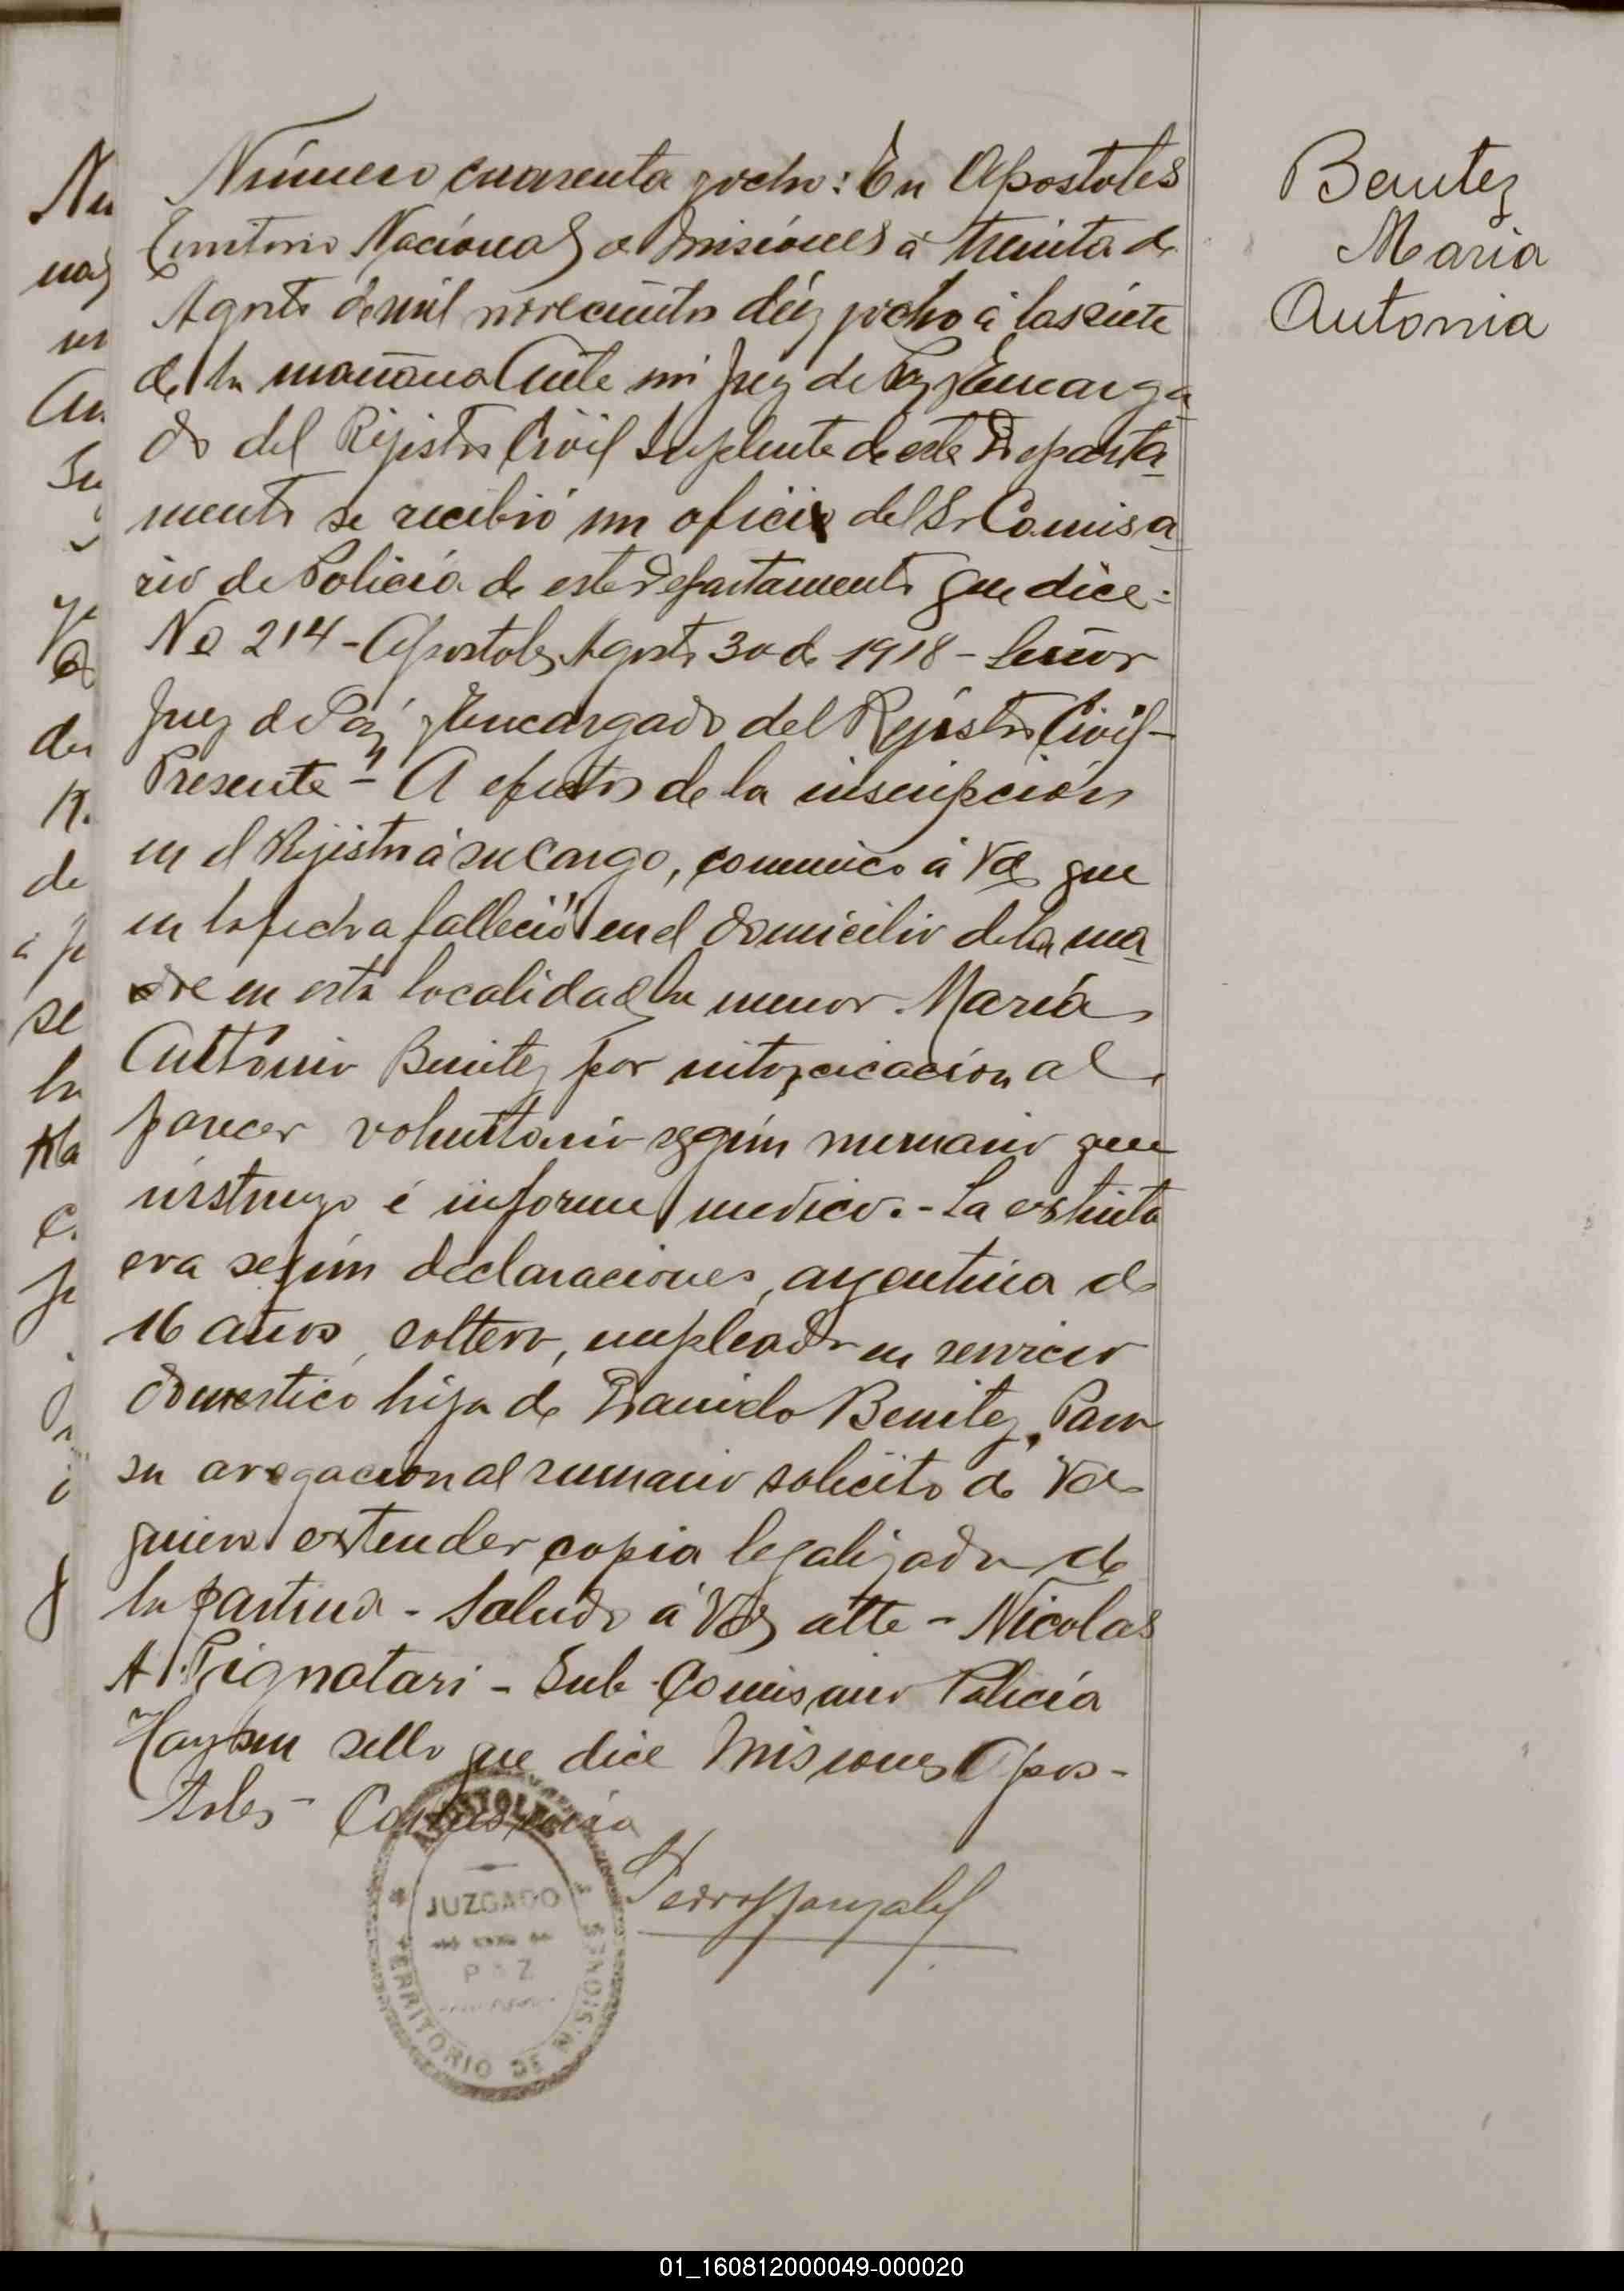 Número cuarenta y ocho: En Apostoles
Territorio Nacional de Misiónes á treinta de
Agosto de mil novecientos diéz y ocho á las siete
de la mañana Ante mi Juez de Paz y Encarga
do del Rejistro Civil Suplente de este Departa
mento se recibió un oficio del Sr Comisa
rio de Policia de este Departamento que dice:
No 214 - Apostoles, Agosto 30 de 1918 - Señor
Juez de Paz y Encargado del Rejistro Civil -
Presente - A efectos de la inscripción
en el Rejistro á su cargo, comunico á Vd que
en la fecha falleció en el domicilio de la ma
dre en esta localidad la menor María
Antonia Benitez por intoxicacion al
parecer voluntario según sumario que
instruyo é informe medico. - La extinta
era según declaraciones, argentina de
16 años, soltera, empleada en servicio
domestico hija de Daniela Benitez, Para
su agregacion al sumario solicito de Vd
quiera extender copia legalizada de
la partida - Saludo á Vd atte - Nicolas
A. Pignatari - Sub - Comisario Policía
Hay un sello que dice Misiones Apos-
toles - Comisaria
Pedro Gonzalez
APOSTOLES
JUZGADO
DE
PAZ
TERRITORIO DE MISIONES
Benitez
Maria
Antonia
Nu
nas
Au
Su
de
de
se
la
01_160812000049-000020